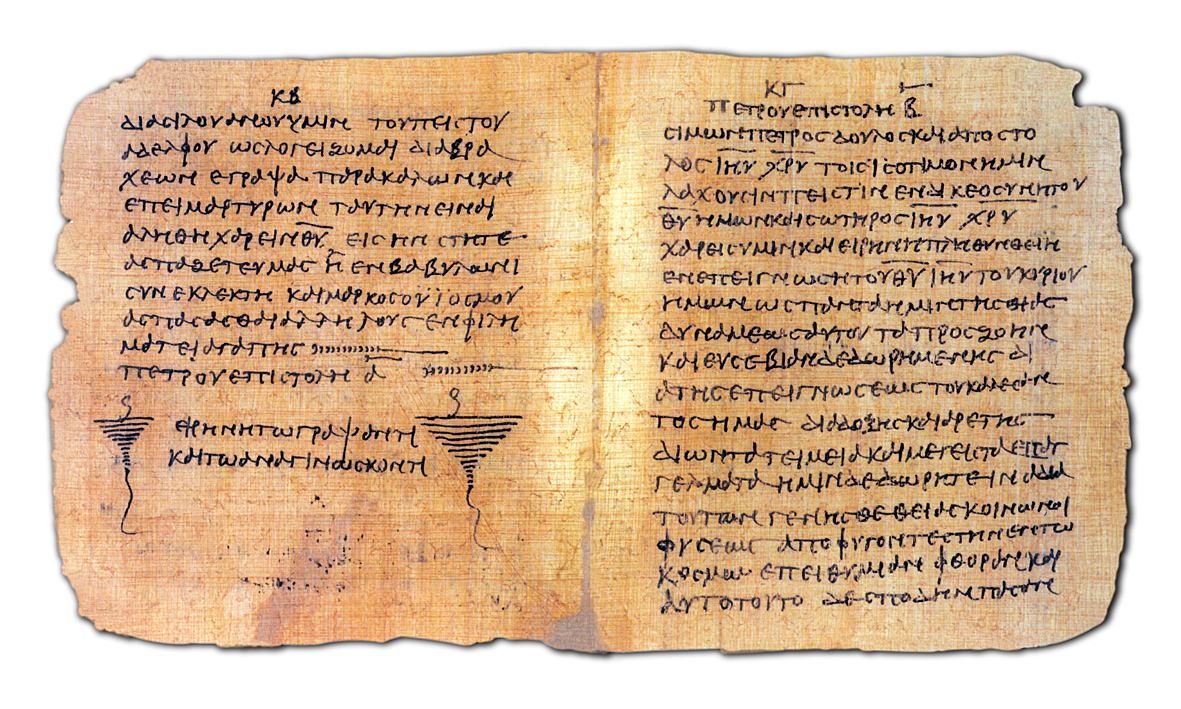 ΚΒ
ΔΙΑϹΙΛΟΥΑΝΟΥΥΜΙΝ ΤΟΥΠΕΙϹΤΟΥ
ΑΔΕΛΦΟΥ ΩϹΛΟΓΕΙΖΟΜΑΙ ΔΙΑΒΡΑ
ΧΕΩΝ ΕΓΡΑΨΑ ΠΑΡΑΚΑΛΩΝΚΑΙ
ΕΠΕΙΜΑΡΤΥΡΩΝ ΤΑΥΤΗΝΕΙΝΑΙ
ΑΛΗΘΗΧΑΡΕΙΝΘ̅Υ̅ ΕΙϹΗΝ ϹΤΗΤΕ
ΑϹΠΑΖΕΤΕΥΜΑϹ Η ΕΝΒΑΒΥΛΩΝΙ
ϹΥΝΕΚΛΕΚΤΗ ΚΑΙΜΑΡΚΟϹΟΥΪΟϹΜΟΥ
ΑϹΠΑϹΑϹΘΑΙΑΛΛΗΛΟΥϹ ΕΝΦΙΛΗ
ΜΑΤΕΙΑΓΑΠΗϹ
ΠΕΤΡΟΥΕΠΙϹΤΟΛΗ Α̅
ΕΙΡΗΝΗΤΩΓΡΑΨΑΝΤΙ
ΚΑΙΤΩΑΝΑΓΙΝΩϹΚΟΝΤΙ
ΚΓ
ΠΕΤΡΟΥΕΠΙϹΤΟΛΗ Β̅
ϹΙΜΩΝΠΕΤΡΟϹ ΔΟΥΛΟϹΚΑΙΑΠΟϹΤΟ
ΛΟϹ Ι̅Η̅Υ̅ Χ̅Ρ̅Υ̅ ΤΟΙϹΙϹΟΤΙΜΟΝΗΜΙΝ
ΛΑΧΟΥϹΙΝΠΕΙϹΤΙΝ ΕΝΔΙΚΕΟϹΥΝΗΤΟΥ
Θ̅Υ̅ ΗΜΩΝΚΑΙϹΩΤΗΡΟϹ Ι̅Η̅Υ̅ Χ̅Ρ̅Υ̅
ΧΑΡΕΙϹΥΜΙΝΚΑΙΕΙΡΗΝΗΠΛΗΘΥΝΘΕΙΗ
ΕΝΕΠΕΙΓΝΩϹΗΤΟΥΘ̅Υ̅ Ι̅Η̅Υ̅ ΤΟΥΚΥΡΙΟΥ
ΗΜΩΝ ΩϹΠΑΝΤΑΗΜΙΝΤΗϹΘΙΑϹ
ΔΥΝΑΜΕΩϹΑΥΤΟΥ ΤΑΠΡΟϹΖΟΗΝ
ΚΑΙΕΥϹΕΒΙΑΝΔΕΔΩΡΗΜΕΝΗϹ ΔΙ
ΑΤΗϹΕΠΕΙΓΝΩϹΕΩϹ ΤΟΥΚΑΛΕϹΑΝ
ΤΟϹΗΜΑϹ ΔΙΑΔΟΞΗϹΚΑΙΑΡΕΤΗϹ
ΔΙΩΝΤΑΤΕΙΜΕΙΑΚΑΙΜΕΓΕΙϹΤΑΕΠΑΓ
ΓΕΛΜΑΤΑ ΗΜΙΝΔΕΔΩΡΗΤΕΙΝΑΔΙΑ
ΤΟΥΤΩΝ ΓΕΝΗϹΘΕΘΕΙΑϹΚΟΙΝΩΝΟΙ
ΦΥϹΕΩϹ ΑΠΟΦΥΓΟΝΤΕϹΤΗΝΕΝΤΩ
ΚΟϹΜΩ ΕΠΕΙΘΥΜΙΑΝ ΦΘΟΡΑΝΚΑΙ
ΑΥΤΟΤΟΥΤΟ ΔΕϹΠΟΔΗΝΠΑϹΑΝ